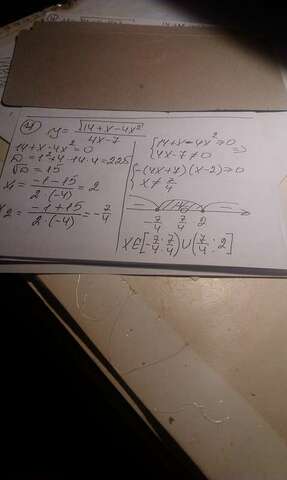 4) y = √(14+x-4x²) / (4x-7)
14+x-4x²=0
D=1²+4·14·4=225
√D=15
x₁ = (-1-15) / (2·(-4)) = 2
x₂ = (-1+15) / (2·(-4)) = -7/4
{14+x-4x²≥0
{4x-7≠0 ⇒
{-(4x+7)(x-2)≥0
{x≠7/4
-7/4 7/4 2
x∈[-7/4; 7/4)∪(7/4; 2]